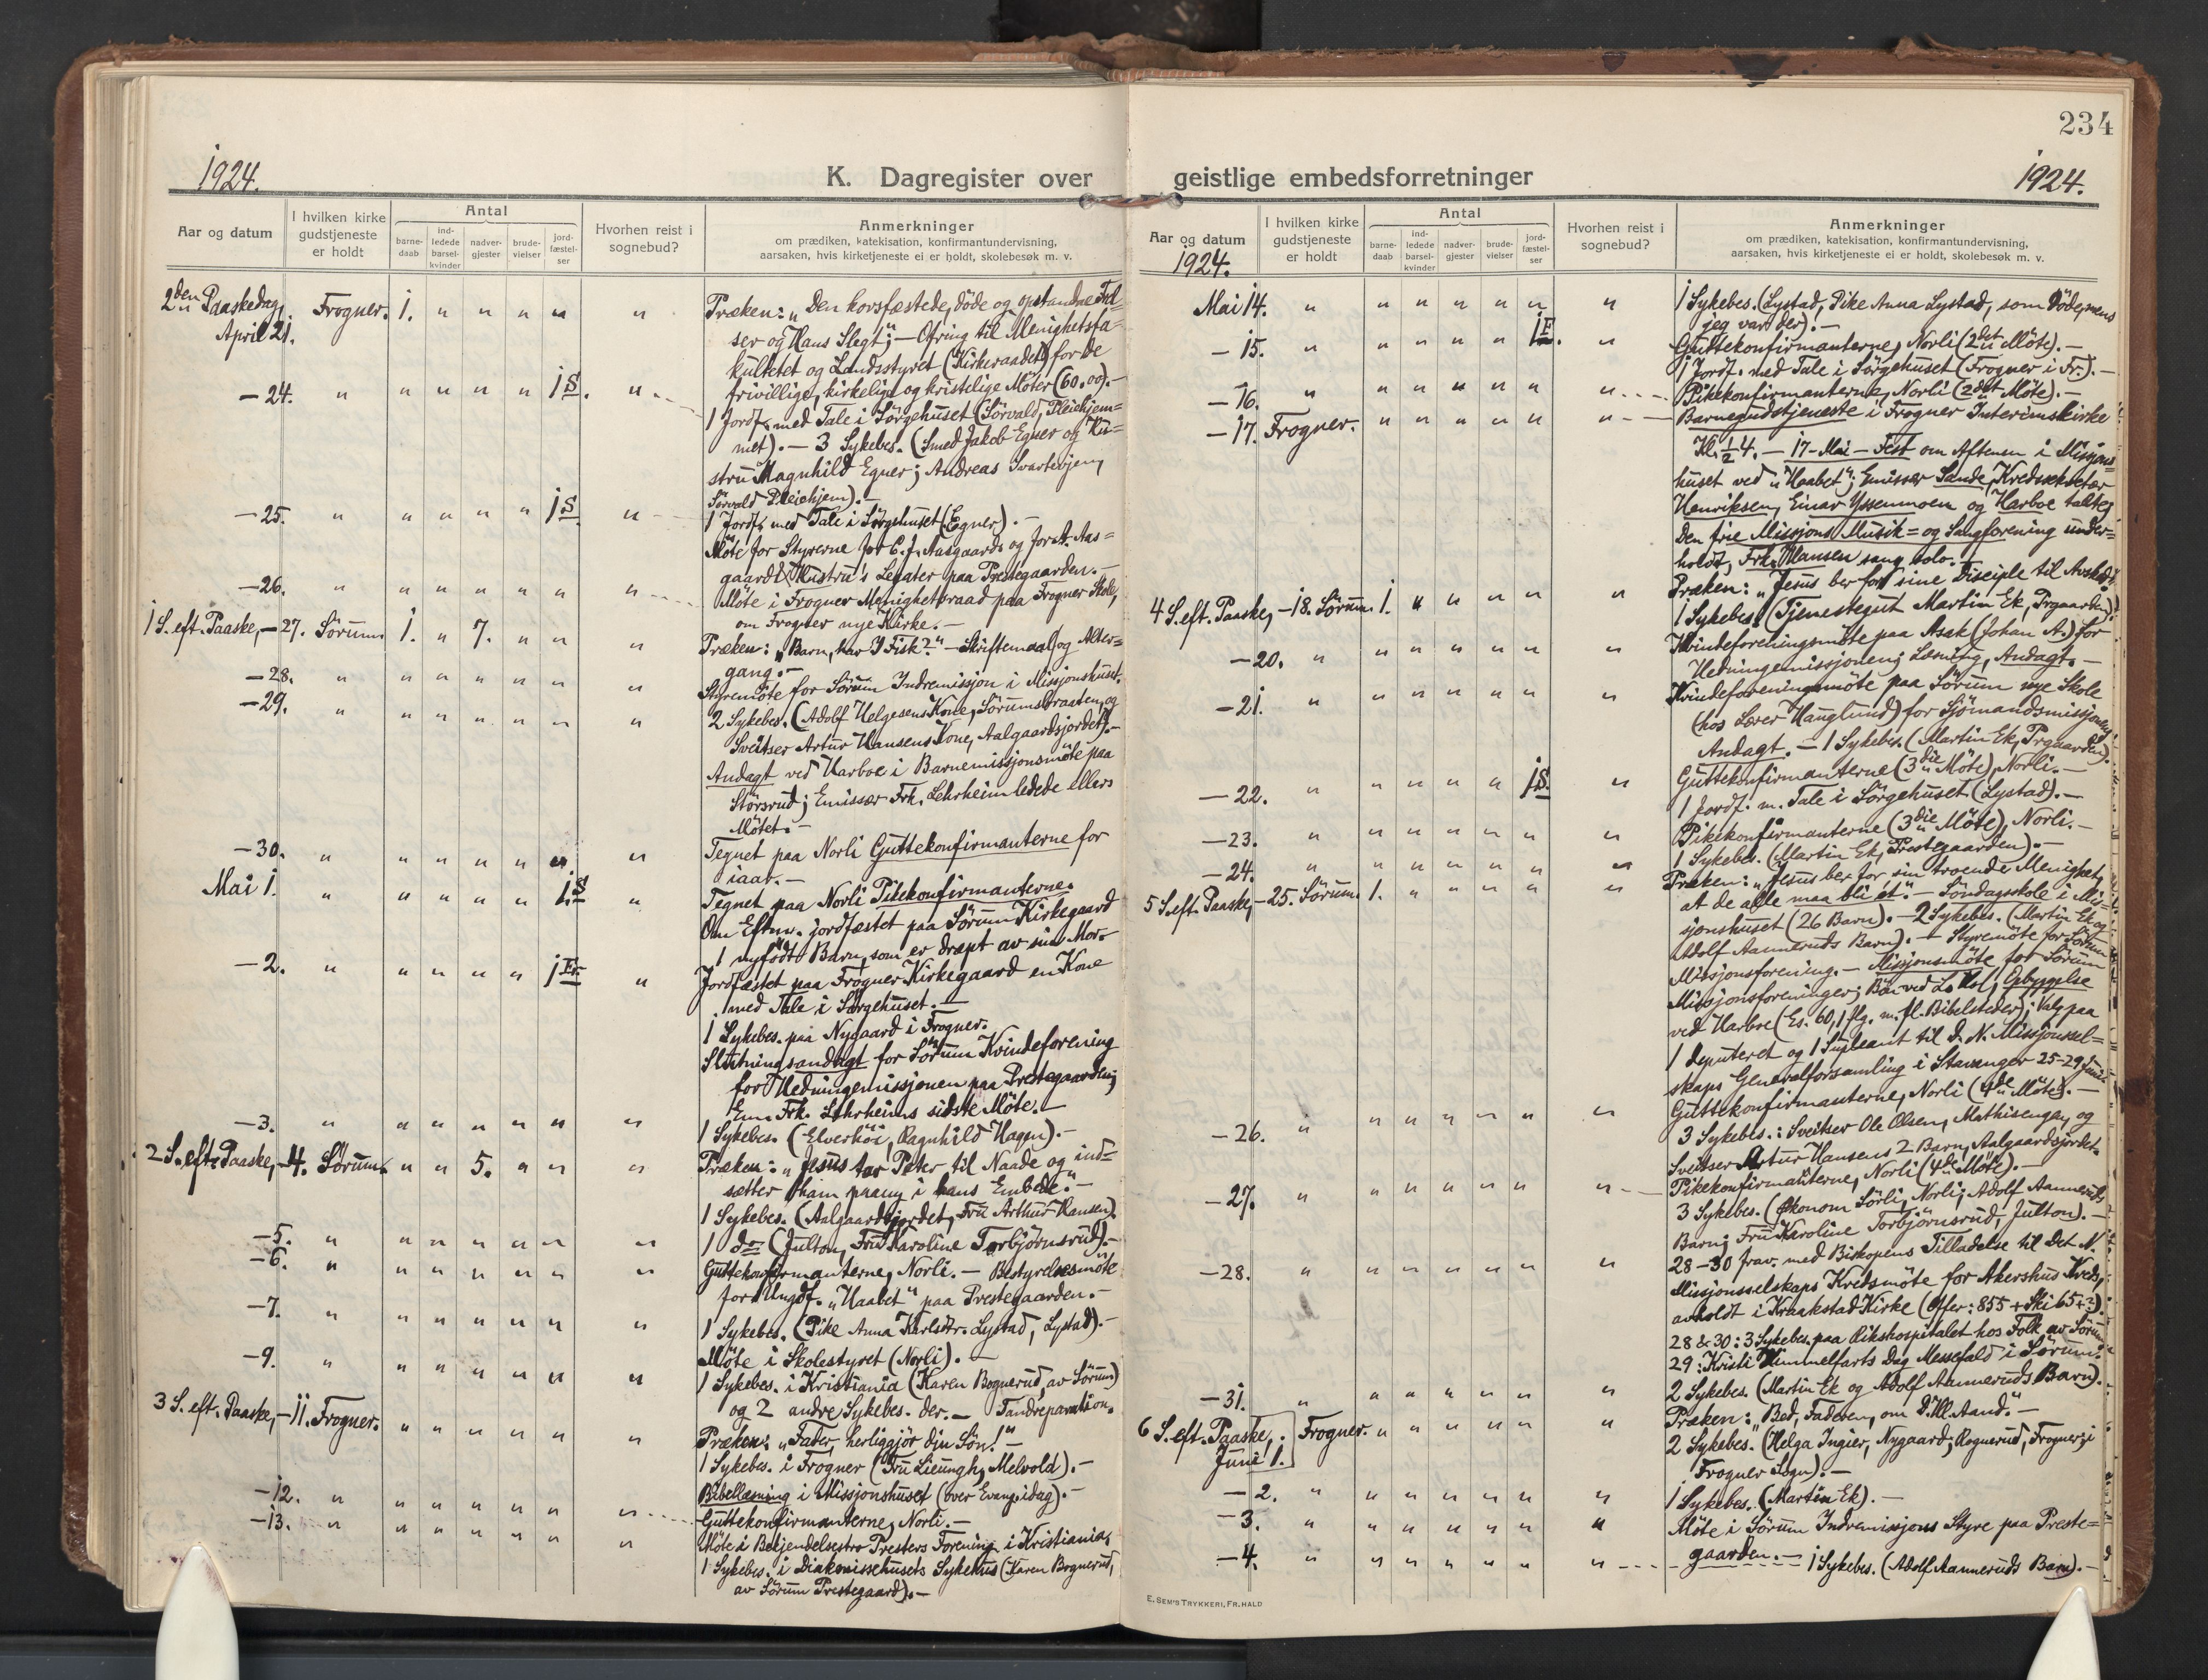 234
1924.
K. Dagregister over
Aar og datum
I hvilken kirke
gudstjeneste
er holdt
Antal
barne-
daab
ind-
ledede
barsel-
kvinder
nadver-
gjester
brude-
vielser
jord-
fæstel-
ser
Hvorhen reist i
sognebud?
Anmerkninger
om prædiken, katekisation, konfirmantundervisning,
aarsaken, hvis kirketjeneste ei er holdt, skolebesøk m. v.
2den Paaskedag, Frogner. 1. " " " " " Præken: „Den korsfæstede, døde og opstandne Frel-
April 21. ser og Hans Slegt"; — Ofring til Menighetsfa-
kultetet og Landsstyret (Kirkeraadet) for de
frivillige, kirkelige og kristelige Møter (60.00). —
— 24. " " " " " 1 S. " 1 Jordf. med Tale i Sörgehuset (Sörvald, Pleiehjem-
met). — 3 Sykebes. (Smed Jakob Egner og Hu-
stru Magnhild Egner; Andreas Svartevjen,
Sörvald Pleiehjem). —
— 25. " " " " " 1 S. " 1 Jordf. med Tale i Sörgehuset (Egner). —
Möte for Styrerne for C. J. Aasgaards og for A. Aas-
gaards Hustru's Legater paa Prestegaarden. —
— 26. " " " " " " " Möte i Frogner Menighetsraad paa Frogner Skole,
om Frogner nye Kirke. —
1 S. eft. Paaske, — 27. Sörum 1. " 7. " " " Præken: „Barn, har I Fisk?" — Skriftemaal og Alter-
gang. —
— 28. " " " " " " " Styremöte for Sörum Indremissjon i Missjonshuset.
— 29. " " " " " " " 2 Sykebes. (Adolf Helgesens Kone, Sörumsbraaten, og
Sveitser Artur Hansens Kone, Aalgaardsjordet). —
Andagt ved Harboe i Barnemissjonsmöte paa
Störsrud; Emissær Frk. Lehrheim ledede ellers
Mötet. —
— 30. " " " " " " " Tegnet paa Norli Guttekonfirmanterne for
iaar. —
Mai 1. " " " " " 1 S " Tegnet paa Norli Pikekonfirmanterne.
Om Eftm. jordfæstet paa Sörum Kirkegaard
1 nyfödt Barn, som er dræpt av sin Mor.
— 2. " " " " " 1 Fr. " Jordfæstet paa Frogner Kirkegaard en Kone
med Tale i Sörgehuset. —
1 Sykebes. paa Nygaard i Frogner.
Slutningsandagt for Sörum Kvindeforening
for Hedningemissjonen paa Prestegaarden;
Em. Frk. Lehrheims sidste Möte. —
— 3. " " " " " " " 1 Sykebes. (Elverhöi, Ragnhild Hagen). —
2 S. eft. Paaske, — 4. Sörum. " " 5. " " " Præken: „Jesus tar Peter til Naade og ind-
sætter ham paany i hans Embede." —
1 Sykebes. (Aalgaardsjordet, Fru Arthur Hansen).
— 5. " " " " " " " 1 do (Julton, Fru Karoline Torbjörnsrud). —
— 6. " " " " " " " Guttekonfirmanterne, Norli. — Bestyrelsesmöte
for Ungdf. „Haabet" paa Prestegaarden. —
— 7. " " " " " " " 1 Sykebes. (Pike Anna Karlsdtr. Lystad, Lystad). —
Möte i Skolestyret (Norli). —
— 9. " " " " " " " 1 Sykebes. i Kristiania (Karen Bognerud, av Sörum)
og 2 andre Sykebes. der. — Tandreparation.
3 S. eft. Paaske, — 11. Frogner. " " " " " " Præken: „Fader, herliggjör din Sön!" —
1 Sykebes. i Frogner (Fru Lieungh, Melvold). —
— 12. " " " " " " " Bibellæsning i Missjonshuset (over Evang. idag). —
Guttekonfirmanterne, Norli. —
— 13. " " " " " " " Möte i Bekjendelsestro Presters Forening i Kristiania,
1 Sykebes. i Diakonissehusets Sykehus (Karen Bognerud,
av Sörum Prestegaard). —
geistlige embedsforretninger
1924.
Aar og datum
1924.
I hvilken kirke
gudstjeneste
er holdt
Antal
barne-
daab
ind-
ledede
barsel-
kvinder
nadver-
gjester
brude-
vielser
jord-
fæstel-
ser
Hvorhen reist i
sognebud?
Anmerkninger
om prædiken, katekisation, konfirmantundervisning,
aarsaken, hvis kirketjeneste ei er holdt, skolebesøk m. v.
Mai 14. " " " " " " " 1 Sykebes. (Lystad, Pike Anna Lystad, som döde, mens
jeg var der). —
Guttekonfirmanterne, Norli (2det Möte). —
— 15. " " " " " 1 F. " 1 Jordf. med Tale i Sörgehuset (Frogner i Fr.). —
Pikekonfirmanterne, Norli (2det Möte). —
— 16. " " " " " " "
— 17. Frogner. " " " " " " Barnegudstjeneste i Frogner Interimskirke
Kl. ½ 4. — 17-Mai-Fest om Aftenen i Missjons-
huset ved „Haabet"; Emissær Sande, Kredssekretær
Henriksen, Einar Yssenmoen og Harboe talte;
Den frie Missjons Musik- og Sangforening under-
holdt, Frk. Hansen sang solo. —
4 S. eft. Paaske, — 18. Sörum 1. " " " " " Præken: „Jesus ber for sine Disciple til Avsked."
1 Sykebes. (Tjenestegut Martin Ek, Prgaarden).
— 20. " " " " " " " Kvindeforeningsmöte paa Asak (Johan A.) for
Hedningemissjonen; Læsning, Andagt. —
— 21. " " " " " " " Kvindeforeningsmöte paa Sörum nye Skole
(hos Lærer Hauglund) for Sjömandsmissjonen;
Andagt. — 1 Sykebes. (Martin Ek, Prgaarden).
Guttekonfirmanterne (3die Möte), Norli. —
— 22. " " " " " 1 S. " 1 Jordf. m. Tale i Sörgehuset (Lystad). —
Pikekonfirmanterne (3die Möte), Norli. —
— 23. " " " " " " " 1 Sykebes. (Martin Ek, Prestegaarden). —
— 24. " " " " " " "
5 S. eft. Paaske, — 25. Sörum. 1. " " " " " Præken: „Jesus ber for sin troende Menighet,
at de alle maa bli ét." — Söndagsskole i Mis-
sjonshuset (26 Barn). — 2 Sykebes. (Martin Ek og
Adolf Aanneruds Barn). — Styremöte for Sörum
Missjonsforening. — Missjonsmöte for Sörum
Missjonsforeninger; Bön ved Opbyggelse
ved Harboe (Es. 60,1 flg. m. fl. Bibelsteder); Valg paa
1 deputeret og 1 Supleant til d. N. Missjonssel-
skaps Generalforsamling i Stavanger 25-29 Juni.
Guttekonfirmanterne, Norli (4de Möte). —
— 26. " " " " " " " 3 Sykebes.: Sveitser Ole Olsen, Mathisenga, og
Sveitser Artur Hansens 2 Barn, Aalgaardsjordet.
— 27. " " " " " " " Pikekonfirmanterne, Norli (4de Möte). —
3 Sykebes. (Ökonom Sörli, Norli; Adolf Aanneruds
Barn; Fru Karoline Torbjörnsrud, Julton). —
— 28. " " " " " " " 28—30 frav. med Biskopens Tilladelse til Det N.
Missjonsselskaps Kredsmöte for Akershus Kreds,
avholdt i Kraakstad Kirke (Offer: 855 + Ski 65 + ?).
28 & 30: 3 Sykebes. paa Rikshospitalet hos Folk av Sörum.
29: Kristi Himmelfarts Dag Messefald i Sörum.
— 31. " " " " " " " 2 Sykebes. (Martin Ek og Adolf Aanneruds Barn).
6 S. eft. Paaske, Frogner. " " " " " " Præken: „Bed, Faderen, om D. Hl. Aand." —
Juni 1. 2 Sykebes. (Helga Ingier, Nygaard; Rognerud, Frogner i
Frogner Sogn). —
— 2. " " " " " " " 1 Sykebes. (Martin Ek). —
— 3. " " " " " " " Möte i Sörum Indremissjons Styre paa Preste-
gaarden. —
— 4. " " " " " " " 1 Sykebes. (Adolf Aanneruds Barn). —
E. SEM'S TRYKKERI, FR.HALD